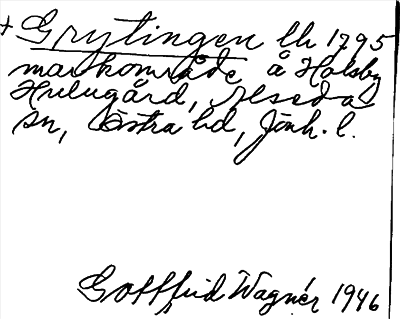 + Grytingen lh 1795
markområde å Holsby
Hulugård, Alseda
sn, Östra hd, Jönk. l.
Gottfrid Wagnér 1946